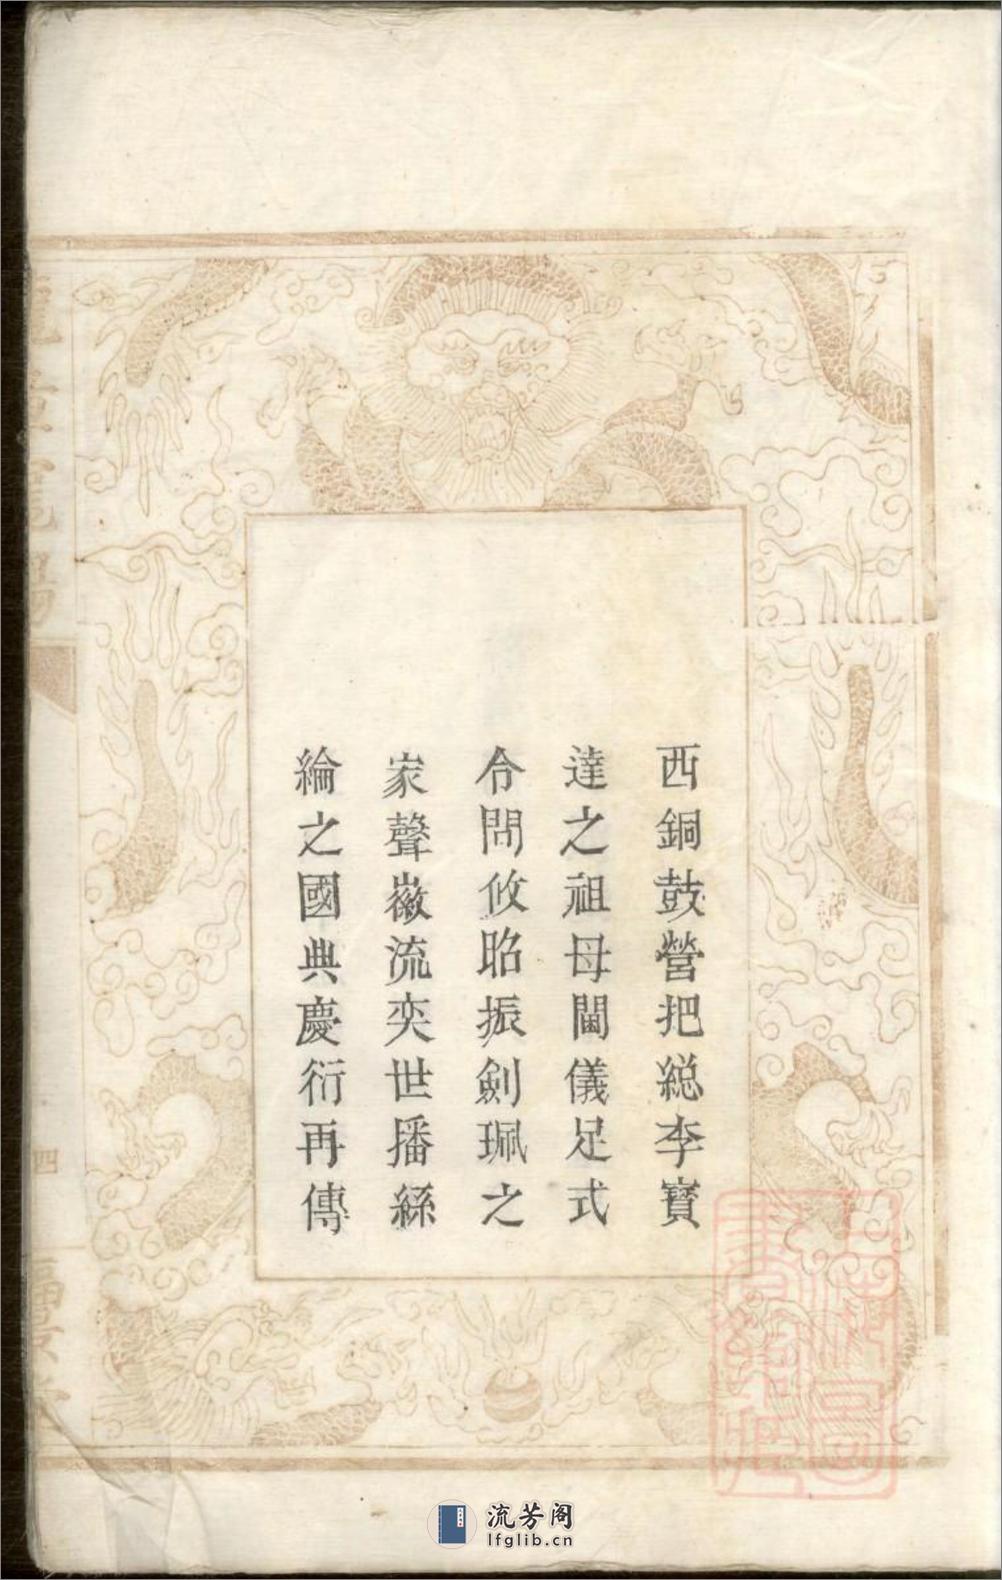 西銅鼓營把總李寶
達之祖母閫儀足式
令問攸昭振劍珮之
家聲徽流奕世播絲
綸之國典慶衍再傳
四
流芳阁
lfglib.cn